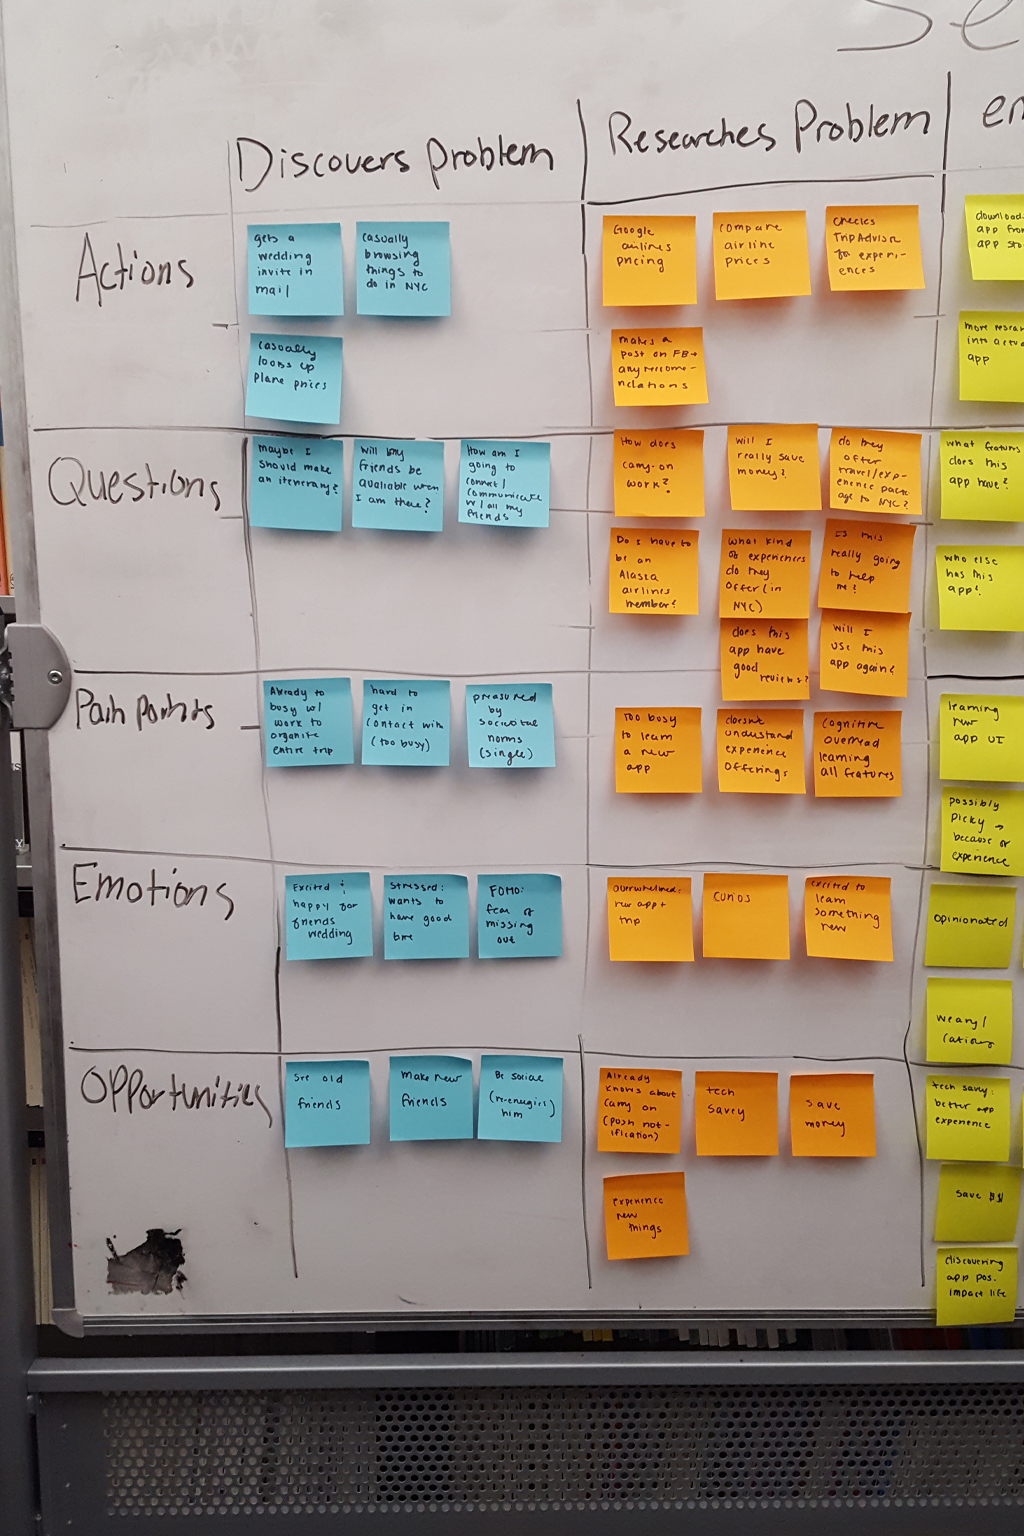 Se
Discovers Problem
Researches Problem
en
Actions
gets a
wedding
invite in
mail
casually
browsing
things to
do in NYC
casually
looks up
plane prices
Google
airlines
pricing
compare
airline
prices
checks
TripAdvisor
for experi-
ences
makes a
post on FB →
any recomme-
ndations
download
app from
app sto
more resear
into actua
app
Questions
maybe I
should make
an itenerary?
Will my
friends be
available when
I am there?
How am I
going to
connect/
communicate
w/ all my
friends
How does
carry-on
work?
will I
really save
money?
do they
offer
travel/exp-
erience pack
age to NYC?
Do I have to
be an
Alaska
airlines
member?
what kind
of experiences
do they
offer (in
NYC)
Is this
really going
to help
me?
does this
app have
good
reviews?
will I
use this
app again?
what features
does this
app have?
who else
has this
app?
Pain points
Already to
busy w/
work to
organize
entire trip
hard to
get in
contact with
(too busy)
pressured
by
societal
norms
(single)
Too busy
to learn
a new
app
doesn't
understand
experience
offerings
cognitive
overload
learning
all features
learning
new
app UI
possibly
picky →
because of
experience
Emotions
Excited &
happy for
friends
wedding
Stressed:
wants to
have good
time
FOMO:
fear of
missing
out
overwhelmed:
new app +
trip
curios
excited to
learn
something
new
opinionated
weary/
Opportunities
See old
friends
make new
friends
Be social
him
Already
knows about
carry on
(push not-
ification)
tech
savey
save
money
experience
new
things
tech savey:
better app
experience
save $$
discovering
app pos.
impact life